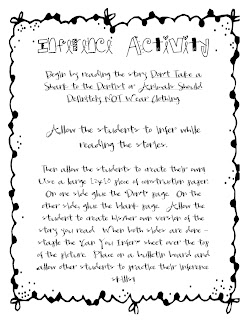 Inference Activity
Begin by reading the story Don't Take a
Shark to the Dentist or Animals Should
Definitely NOT Wear Clothing.
Allow the students to infer while
reading the stories.
Then allow the students to create their own!
Use a large 12x18 piece of construction paper.
On one side glue the "Don't" page. On the
other side, glue the blank page. Allow the
student to create his/her own version of the
story you read. When both sides are done -
staple the "Can You Infer" sheet over the top
of the picture. Place on a bulletin board and
allow other students to practice their inference
skills!